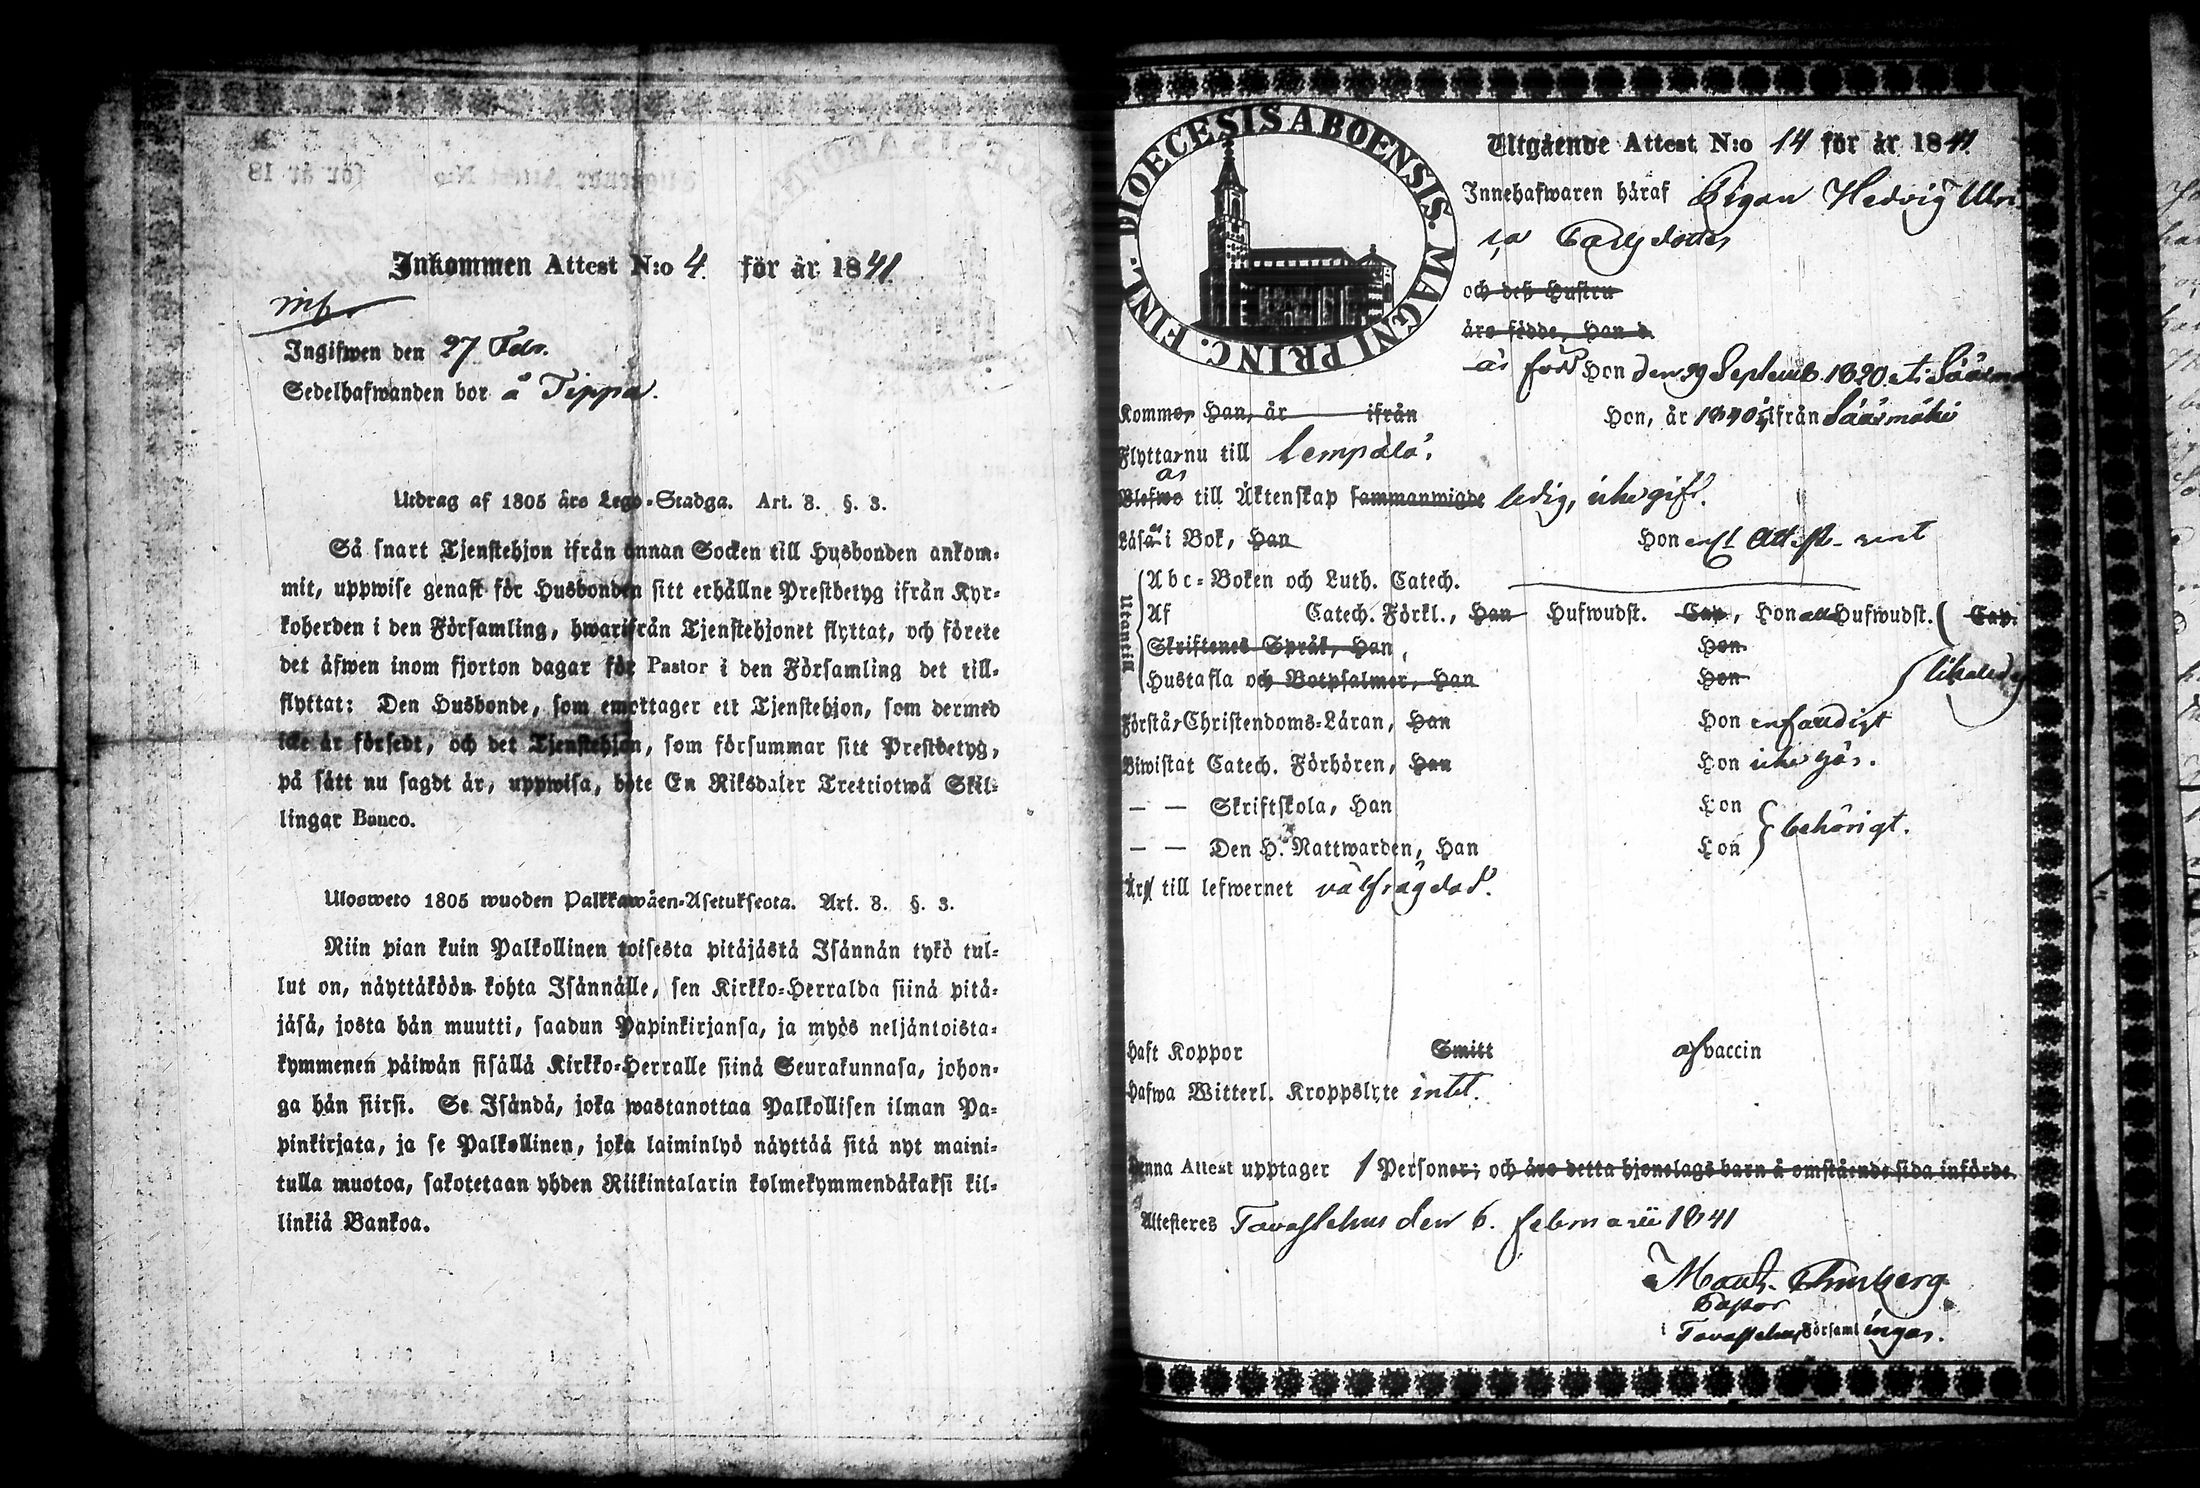 Inkommen Attest N:o 4. för år 1841.
Ingifwen den 27 Febr.
Sedelhafwanden bor å Tippa.
Utdrag af 1805 års Lego-Stadga. Art. 8. §. 3.
Så snart Tjenstehjon ifrån annan Socken till Husbonden ankom-
mit, uppwise genast för Husbonden sitt erhållne Prestbetyg ifrån Kyr-
koherden i den Församling, hwarifrån Tjenstehjonet flyttat, och förete
det äfwen inom fjorton dagar för Pastor i den Församling det till-
flyttat: Den Husbonde, som emottager ett Tjenstehjon, som dermed
icke är försedt, och det Tjenstehjon, som försummar sitt Prestbetyg,
på sätt nu sagdt är, uppwisa, böte En Riksdaler Trettiotwå Skil-
lingar Banco.
Ulosweto 1805 wuoden Palkkawäen-Asetuksesta. Art. 8. §. 3.
Niin pian kuin Palkollinen toisesta pitäjästä Isännän tykö tul-
lut on, näyttäköön kohta Isännälle, sen Kirkko-Herralda siinä pitä-
jäsä, josta hän muutti, saadun Papinkirjansa, ja myös neljäntoista-
kymmenen päiwän sisällä Kirkko-Herralle siinä Seurakunnasa, johon-
ga hän siirsi. Se Isändä, joka wastanottaa Palkollisen ilman Pa-
pinkirjata, ja se Palkollinen, joka laiminlyö näyttää sitä nyt maini-
tulla muotoa, sakotetaan yhden Riikintalarin kolmekymmendäkaksi kil-
linkiä Bankoa.
DIOECESIS ABOENSIS. MAGNI PRINC. FINL.
Utgående Attest N:o 14 för år 1841.
Innehafwaren häraf Pigan Hedvig Ulri
ca Carlsdotter
och deß Hustru
äro födde, Han d.
är född Hon den 29 Septemb. 1820 i Sääxmä
Kommo, Han, år ifrån Hon, år 1840 ifrån Sääxmäki
Flyttar nu till Lempälä.
är
Blefwo till Äktenskap sammanwigde ledig, icke gift.
Läsa i Bok, Han Hon enl. Attest rent
Utantill
Abc-Boken och Luth. Catech.
Af Catech. Förkl., Han Hufwudst. Cap., Hon alla Hufwudst. Cap.
Skriftenes Språk, Han Hon
Hustafla och Botpsalmer, Han Hon likaledes
Förstår Christendoms-Läran, Han Hon enfaldigt
Biwistat Catech. Förhören, Han Hon icke här.
— — Skriftskola, Han Hon
— — Den H. Nattwarden, Han Hon behörigt.
Är till lefwernet välfrägdad.
Haft Koppor Smitt af vaccin
Hafwa Witterl. Kroppslyte intet.
Denna Attest upptager 1 Personer; och äro detta hjonelags barn å omstående sida införde.
Attesteres Tavastehus den 6. februarii 1841
Pastor
i Tavastehus Församlingar.